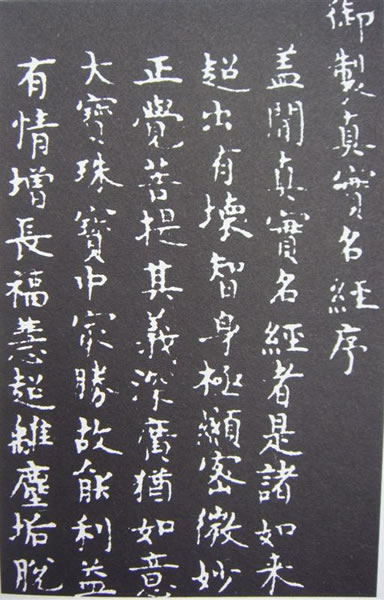 御製真實名經序
盖聞真實名經者是諸如来
超出有壞智身極顯密微妙
正覺菩提其義深廣猶如意
大寶珠寶中㝡勝故能利益
有情增長福慧超離塵垢脫